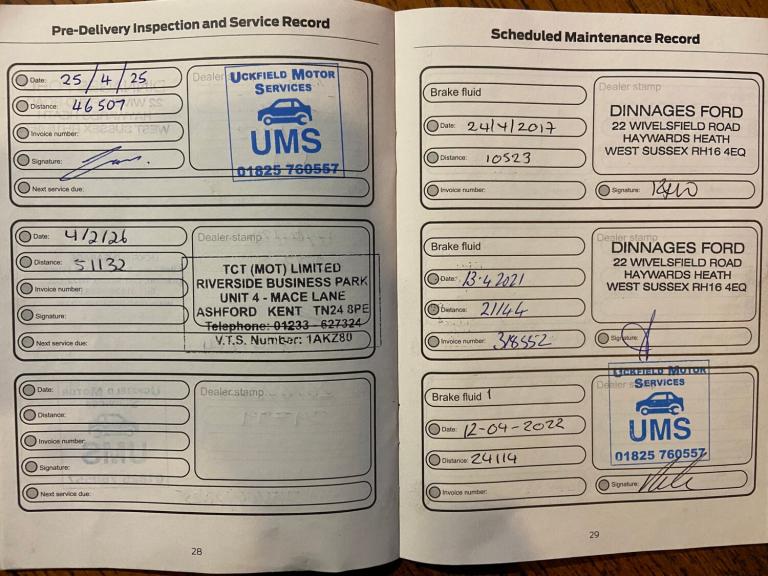 Pre-Delivery Inspection and Service Record
Date: 25/4/25
Distance: 46507
Invoice number:
Signature:
Next service due:
Dealer
UCKFIELD MOTOR
SERVICES
UMS
01825 760557
Date: 4/2/26
Distance: 51132
Invoice number:
Signature:
Next service due:
Dealer stamp
TCT (MOT) LIMITED
RIVERSIDE BUSINESS PARK
UNIT 4 - MACE LANE
ASHFORD KENT TN24 8PE
Telephone: 01233 - 627324
V.T.S. Number: 1AKZ80
Date:
Distance:
Invoice number:
Signature:
Next service due:
Dealer stamp
28
Scheduled Maintenance Record
Brake fluid
Date: 24/4/2017
Distance: 10523
Invoice number:
Dealer stamp
DINNAGES FORD
22 WIVELSFIELD ROAD
HAYWARDS HEATH
WEST SUSSEX RH16 4EQ
Signature:
Brake fluid
Date: 13.4.2021
Distance: 21144
Invoice number: 318552
Dealer stamp
DINNAGES FORD
22 WIVELSFIELD ROAD
HAYWARDS HEATH
WEST SUSSEX RH16 4EQ
Signature:
Brake fluid 1
Date: 12-04-2022
Distance: 24114
Invoice number:
UCKFIELD MOTOR
SERVICES
UMS
01825 760557
Signature:
29